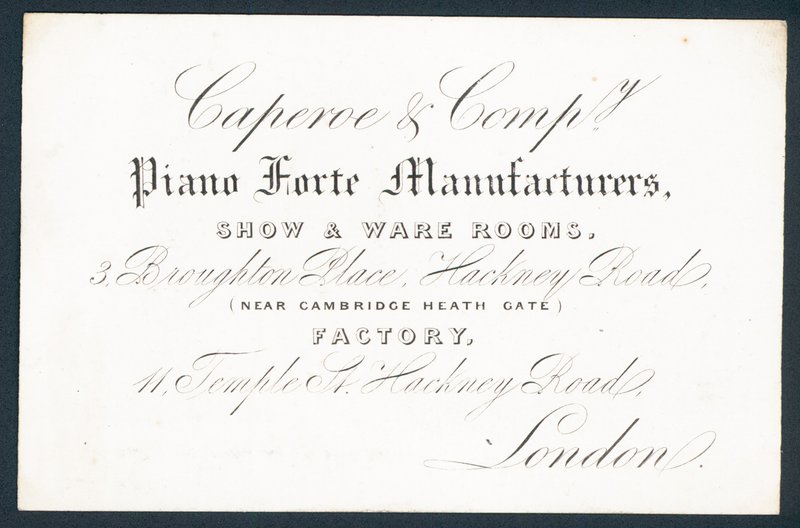 Caperoe & Compy.
Piano Forte Manufacturers,
SHOW & WARE ROOMS,
3, Broughton Place, Hackney Road,
(NEAR CAMBRIDGE HEATH GATE)
FACTORY,
11, Temple St. Hackney Road,
London.